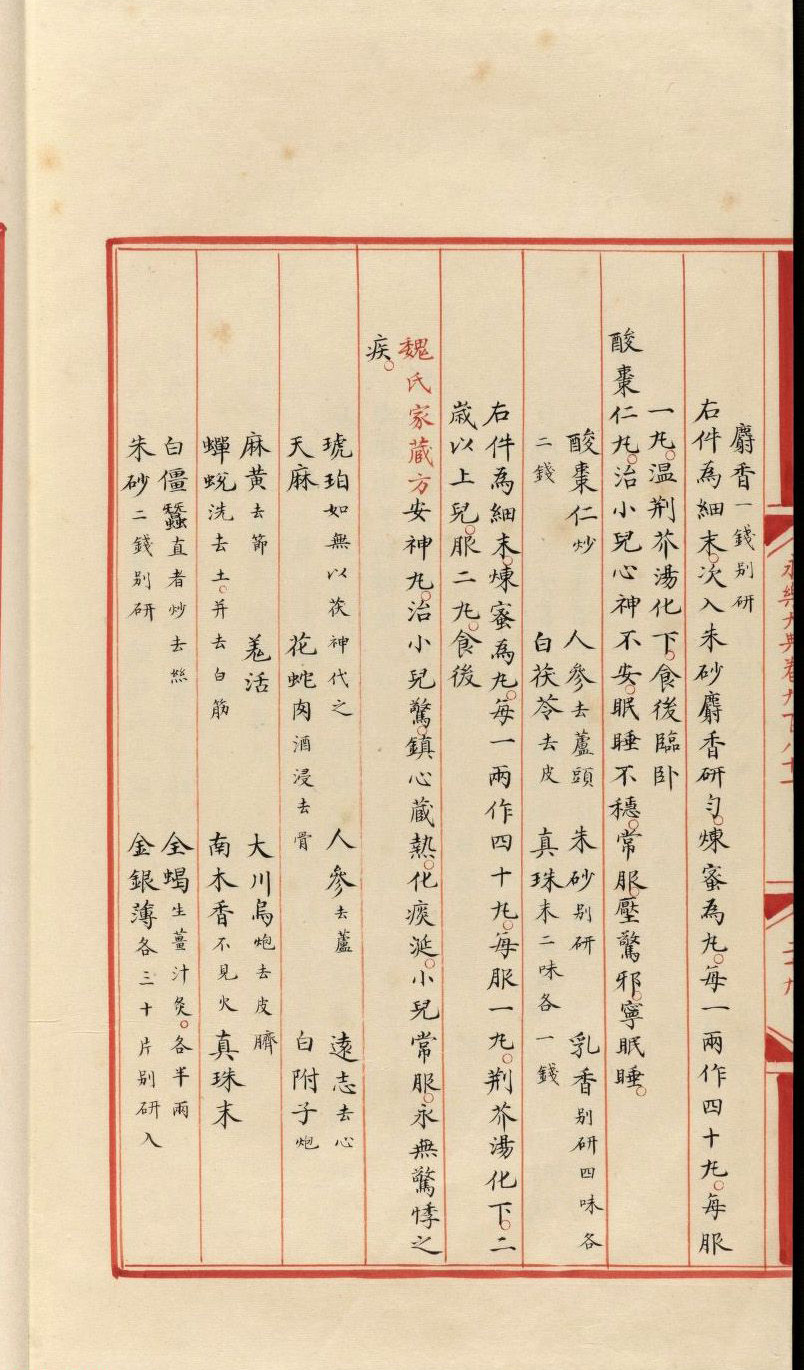 永樂大典卷九百八十一
二十九
麝香一錢别研
右件為細末。次入朱砂麝香研勻。煉蜜為丸。每一兩作四十丸。每服
一丸。温荆芥湯化下。食後臨卧
酸棗仁丸。治小兒心神不安。眠睡不穩。常服。壓驚邪。寧眠睡。
酸棗仁炒 人參去蘆頭 朱砂别研 乳香别研四味各
二錢 白茯苓去皮 真珠末二味各一錢
右件為細末。煉蜜為丸。每一兩作四十丸。每服一丸。荆芥湯化下。二
歳以上兒。服二丸。食後
魏氏家藏方安神丸。治小兒驚。鎮心藏熱。化痰涎。小兒常服。永無驚悸之
疾。
琥珀如無以茯神代之 人參去蘆 遠志去心
天麻 花蛇肉酒浸去骨 白附子炮
麻黄去節 羗活 大川烏炮去皮臍
蟬蛻洗去土。并去白筋 南木香不見火 真珠末
白僵蠶直者炒去絲 全蝎生薑汁炙。各半兩
朱砂二錢别研 金銀薄各三十片别研入